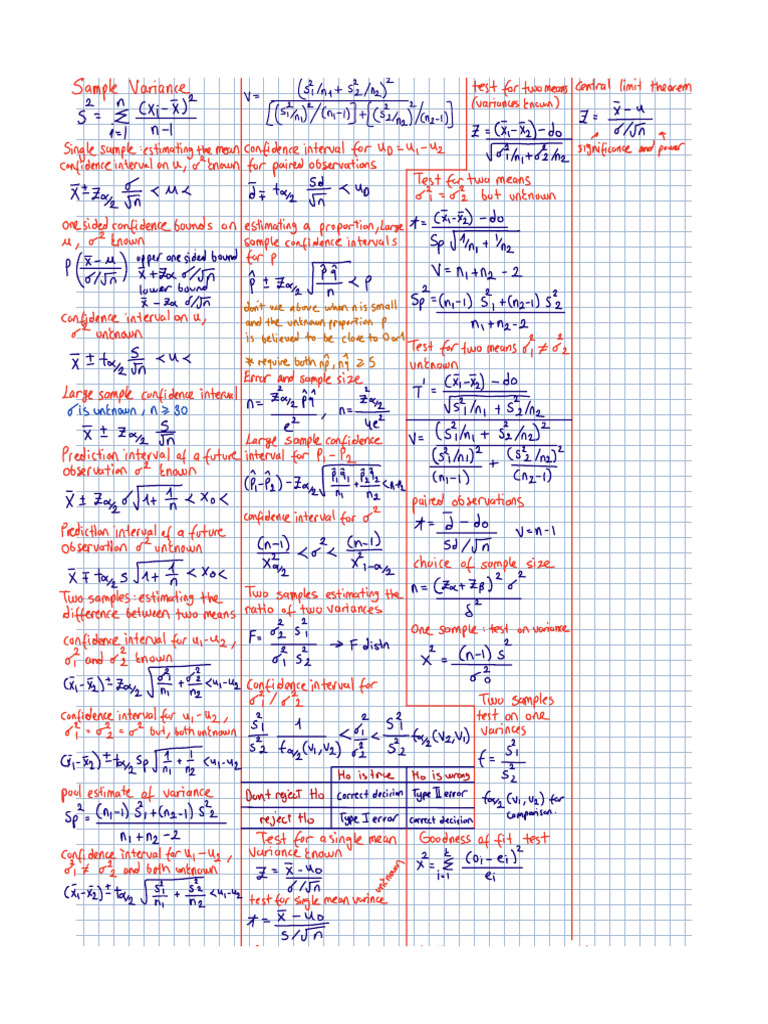 Sample Variance
S² = Σ (n, i=1) (xi - x̄)² / n-1
Single sample: estimating the mean
confidence interval on u, σ² known
x̄ ± Zα/2 σ/√n < u <
one sided confidence bounds on
u, σ² known
P( x̄ - u / σ/√n ) upper one sided bound
x̄ + Zα σ/√n
lower bound
x̄ - Zα σ/√n
confidence interval on u,
σ² unknown
x̄ ± tα/2 S/√n < u <
Large sample confidence interval
σ is unknown, n ≥ 30
x̄ ± Zα/2 S/√n
Prediction interval of a future
observation σ² known
x̄ ± Zα/2 σ √(1 + 1/n) < x0 <
Prediction interval of a future
observation σ² unknown
x̄ ∓ tα/2 S √(1 + 1/n) < x0 <
Two samples: estimating the
difference between two means
confidence interval for u1-u2,
σ1² and σ2² known
(x̄1-x̄2) ± Zα/2 √(σ1²/n1 + σ2²/n2) < u1-u2
confidence interval for u1-u2,
σ1² = σ2² = σ² but, both unknown
(x̄1-x̄2) ± tα/2 Sp √(1/n1 + 1/n2) < u1-u2
pool estimate of variance
Sp² = (n1-1) S1² + (n2-1) S2² / n1+n2-2
confidence interval for u1-u2,
σ1² ≠ σ2² and both unknown
(x̄1-x̄2) ± tα/2 √(S1²/n1 + S2²/n2) < u1-u2
V = (S1²/n1 + S2²/n2)² / [(S1²/n1)²/(n1-1)] + [(S2²/n2)²/(n2-1)]
confidence interval for uD = u1-u2
for paired observations
d̄ ∓ tα/2 Sd/√n < uD
estimating a proportion, large
sample confidence intervals
for p
p̂ ± Zα/2 √(p̂q̂/n) < p
don't use above when n is small
and the unknown proportion p
is believed to be close to 0 or 1
* require both np̂, nq̂ ≥ 5
Error and sample size
n = Z²α/2 p̂q̂ / e², n = Z²α/2 / 4e²
Large sample confidence
interval for P1-P2
(p̂1-p̂2) - Zα/2 √(p̂1q̂1/n1 + p̂2q̂2/n2) < P1-P2
confidence interval for σ²
(n-1)/X²α/2 < σ² < (n-1)/X²1-α/2
Two samples estimating the
ratio of two variances
F = σ2² S1² / σ1² S2² → F distn
Confidence interval for
σ1²/σ2²
S1²/S2² 1/fα/2(v1,v2) < σ1²/σ2² < S1²/S2² fα/2(v2,v1)
Ho is true Ho is wrong
Dont reject Ho correct decision Type II error
reject Ho Type I error correct decision
Test for a single mean
variance known
Z = x̄ - u0 / σ/√n
test for single mean varince unknown
t = x̄ - u0 / S/√n
test for two means
(variances known)
Z = (x̄1-x̄2) - do / √(σ1²/n1 + σ2²/n2)
Test for two means
σ1² = σ2² but unknown
t = (x̄1-x̄2) - do / Sp √(1/n1 + 1/n2)
V = n1+n2-2
Sp² = (n1-1) S1² + (n2-1) S2² / n1+n2-2
Test for two means σ1² ≠ σ2²
unknown
T' = (x̄1-x̄2) - do / √(S1²/n1 + S2²/n2)
V = (S1²/n1 + S2²/n2)² / (S1²/n1)²/(n1-1) + (S2²/n2)²/(n2-1)
paired observations
t = d̄ - do / Sd/√n V = n-1
choice of sample size
n = (Zα + Zβ)² σ² / δ²
One sample: test on variance
X² = (n-1) S² / σ0²
Two samples
test on one
varinces
f = S1²/S2²
fα/2 (v1, v2) for
comparison.
Goodness of fit test
X² = Σ (k, i=1) (oi - ei)² / ei
central limit theorem
Z = x̄ - u / σ/√n
significance and power